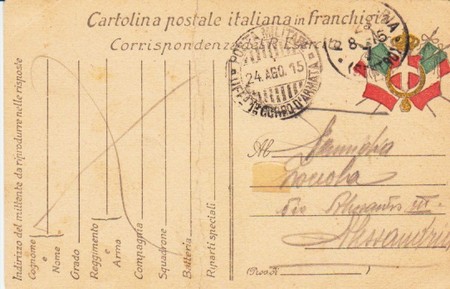 Cartolina postale italiana in franchigia
Corrispondenza del R. Esercito
POSTA MILITARE
24 AGO. 15
CORPO D'ARMATA
28 8 15
Indirizzo del mittente da riprodurre nelle risposte
Cognome
e
Nome
Grado
Reggimento
e
Arma
Compagnia
Squadrone
Batteria
Riparti speciali
Al Famiglia
III
Alessandria